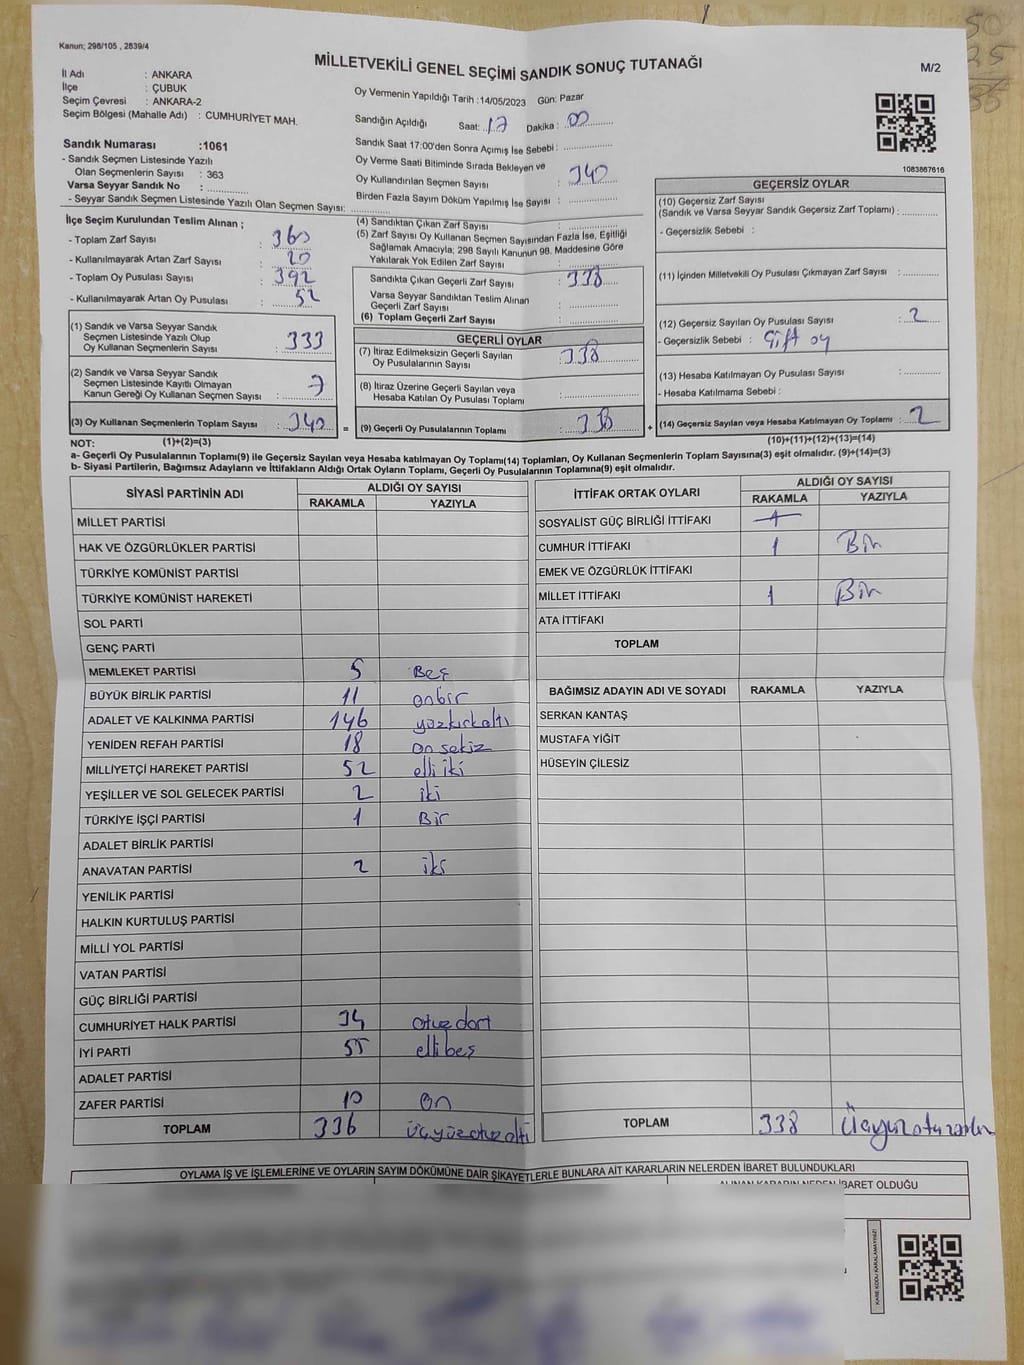 Kanun; 298/105 , 2839/4
MİLLETVEKİLİ GENEL SEÇİMİ SANDIK SONUÇ TUTANAĞI
M/2
İl Adı : ANKARA
İlçe : ÇUBUK
Seçim Çevresi : ANKARA-2
Seçim Bölgesi (Mahalle Adı) : CUMHURİYET MAH.
Oy Vermenin Yapıldığı Tarih :14/05/2023 Gün: Pazar
Sandığın Açıldığı Saat: 17 Dakika : 00
Sandık Saat 17:00'den Sonra Açımış İse Sebebi :
Oy Verme Saati Bitiminde Sırada Bekleyen ve
Oy Kullandırılan Seçmen Sayısı : 340
Birden Fazla Sayım Döküm Yapılmış İse Sayısı :
Sandık Numarası :1061
- Sandık Seçmen Listesinde Yazılı
Olan Seçmenlerin Sayısı : 363
Varsa Seyyar Sandık No :
- Seyyar Sandık Seçmen Listesinde Yazılı Olan Seçmen Sayısı:
1083867616
İlçe Seçim Kurulundan Teslim Alınan ;
- Toplam Zarf Sayısı : 360
- Kullanılmayarak Artan Zarf Sayısı : 20
- Toplam Oy Pusulası Sayısı : 392
- Kullanılmayarak Artan Oy Pusulası : 52
(1) Sandık ve Varsa Seyyar Sandık
Seçmen Listesinde Yazılı Olup
Oy Kullanan Seçmenlerin Sayısı : 333
(2) Sandık ve Varsa Seyyar Sandık
Seçmen Listesinde Kayıtlı Olmayan
Kanun Gereği Oy Kullanan Seçmen Sayısı : 7
(3) Oy Kullanan Seçmenlerin Toplam Sayısı : 340 =
(4) Sandıktan Çıkan Zarf Sayısı
(5) Zarf Sayısı Oy Kullanan Seçmen Sayısından Fazla İse, Eşitliği
Sağlamak Amacıyla; 298 Sayılı Kanunun 98. Maddesine Göre
Yakılarak Yok Edilen Zarf Sayısı :
Sandıkta Çıkan Geçerli Zarf Sayısı : 338
Varsa Seyyar Sandıktan Teslim Alınan
Geçerli Zarf Sayısı :
(6) Toplam Geçerli Zarf Sayısı :
GEÇERLİ OYLAR
(7) İtiraz Edilmeksizin Geçerli Sayılan
Oy Pusulalarının Sayısı : 338
(8) İtiraz Üzerine Geçerli Sayılan veya
Hesaba Katılan Oy Pusulası Toplamı :
(9) Geçerli Oy Pusulalarının Toplamı : 338 +
GEÇERSİZ OYLAR
(10) Geçersiz Zarf Sayısı
(Sandık ve Varsa Seyyar Sandık Geçersiz Zarf Toplamı) :
- Geçersizlik Sebebi :
(11) İçinden Milletvekili Oy Pusulası Çıkmayan Zarf Sayısı :
(12) Geçersiz Sayılan Oy Pusulası Sayısı : 2
- Geçersizlik Sebebi : Çift oy
(13) Hesaba Katılmayan Oy Pusulası Sayısı :
- Hesaba Katılmama Sebebi :
(14) Geçersiz Sayılan veya Hesaba Katılmayan Oy Toplamı : 2
NOT: (1)+(2)=(3) (10)+(11)+(12)+(13)=(14)
a- Geçerli Oy Pusulasının Toplamı(9) ile Geçersiz Sayılan veya Hesaba katılmayan Oy Toplamı(14) Toplamları, Oy Kullanan Seçmenlerin Toplam Sayısına(3) eşit olmalıdır. (9)+(14)=(3)
b- Siyasi Partilerin, Bağımsız Adayların ve İttifakların Aldığı Ortak Oyların Toplamı, Geçerli Oy Pusulalarının Toplamına(9) eşit olmalıdır.
SİYASİ PARTİNİN ADI ALDIĞI OY SAYISI
RAKAMLA YAZIYLA
MİLLET PARTİSİ
HAK VE ÖZGÜRLÜKLER PARTİSİ
TÜRKİYE KOMÜNİST PARTİSİ
TÜRKİYE KOMÜNİST HAREKETİ
SOL PARTİ
GENÇ PARTİ
MEMLEKET PARTİSİ 5 Beş
BÜYÜK BİRLİK PARTİSİ 11 onbir
ADALET VE KALKINMA PARTİSİ 146 yüzkırkaltı
YENİDEN REFAH PARTİSİ 18 on sekiz
MİLLİYETÇİ HAREKET PARTİSİ 52 elli iki
YEŞİLLER VE SOL GELECEK PARTİSİ 2 iki
TÜRKİYE İŞÇİ PARTİSİ 1 Bir
ADALET BİRLİK PARTİSİ
ANAVATAN PARTİSİ 2 iki
YENİLİK PARTİSİ
HALKIN KURTULUŞ PARTİSİ
MİLLİ YOL PARTİSİ
VATAN PARTİSİ
GÜÇ BİRLİĞİ PARTİSİ
CUMHURİYET HALK PARTİSİ 34 otuz dört
İYİ PARTİ 55 elli beş
ADALET PARTİSİ
ZAFER PARTİSİ 10 on
TOPLAM 336 üçyüzotuzaltı
İTTİFAK ORTAK OYLARI ALDIĞI OY SAYISI
RAKAMLA YAZIYLA
SOSYALİST GÜÇ BİRLİĞİ İTTİFAKI 1
CUMHUR İTTİFAKI 1 Bir
EMEK VE ÖZGÜRLÜK İTTİFAKI
MİLLET İTTİFAKI 1 Bir
ATA İTTİFAKI
TOPLAM
BAĞIMSIZ ADAYIN ADI VE SOYADI RAKAMLA YAZIYLA
SERKAN KANTAŞ
MUSTAFA YİĞİT
HÜSEYİN ÇİLESİZ
TOPLAM 338
OYLAMA İŞ VE İŞLEMLERİNE VE OYLARIN SAYIM DÖKÜMÜNE DAİR ŞİKAYETLERLE BUNLARA AİT KARARLARIN NELERDEN İBARET BULUNDUKLARI
ALINAN KARARIN NEDEN İBARET OLDUĞU
KARE KODU KARALAMAYINIZ!